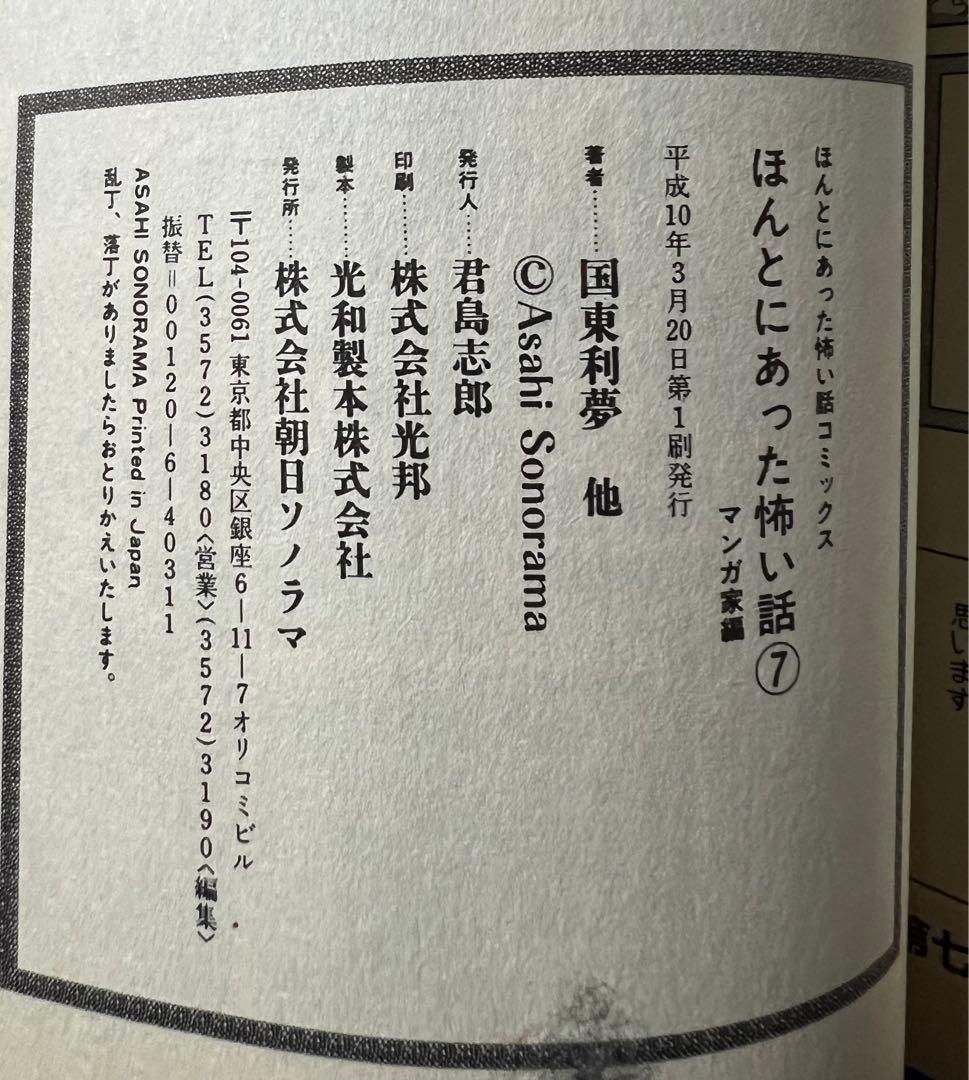 ほんとにあった怖い話コミックス
ほんとにあった怖い話⑦
マンガ家編
平成10年3月20日第1刷発行
著者……国東利夢　他
©Asahi Sonorama
発行人……君島志郎
印刷……株式会社光邦
製本……光和製本株式会社
発行所……株式会社朝日ソノラマ
〒104-0061 東京都中央区銀座6—11—7オリコミビル
TEL(3572)3180〈営業〉(3572)3190〈編集〉
振替＝00120—6—40311
ASAHI SONORAMA Printed in Japan
乱丁、落丁がありましたらおとりかえいたします。
思います
第七